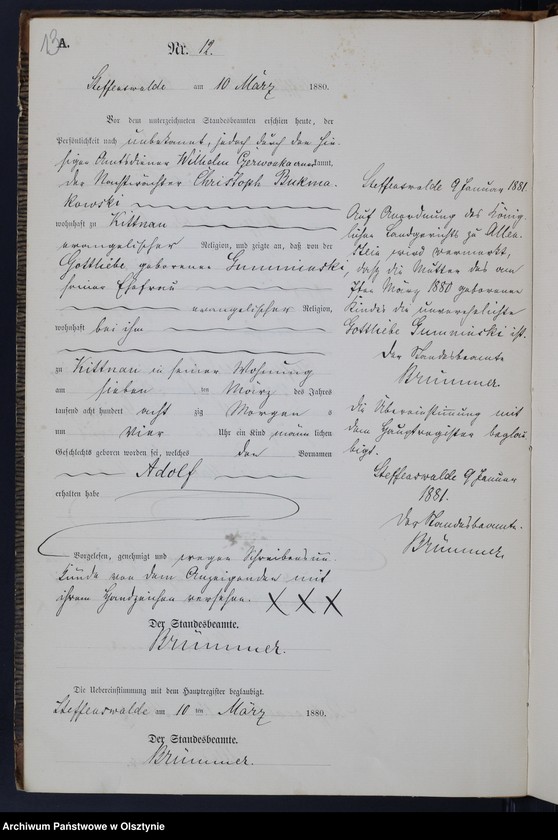 13
A.
Nr. 12.
Steffenswalde am 10 März 1880.
Vor dem unterzeichneten Standesbeamten erschien heute, der
Persönlichkeit nach unbekannt, jedoch durch den hie-
sigen Amtsdiener Wilhelm Czerwonka anerkannt,
der Nachtwächter Christoph Bukma-
kowski
wohnhaft zu Kittnau
evangelischer Religion, und zeigte an, daß von der
Gottliebe geborenen Gumminski,
seiner Ehefrau
evangelischer Religion,
wohnhaft bei ihm
zu Kittnau in seiner Wohnung
am sieben ten März des Jahres
tausend acht hundert acht zig Morgens
um vier Uhr ein Kind männlichen
Geschlechts geboren worden sei, welches den Vornamen
Adolf
erhalten habe
Vorgelesen, genehmigt und wegen Schreibensun-
kunde von dem Anzeigenden mit
ihrem Handzeichen versehen. XXX
Der Standesbeamte.
Brümmer.
Die Uebereinstimmung mit dem Hauptregister beglaubigt.
Steffenswalde am 10 ten März 1880.
Der Standesbeamte.
Brümmer.
Steffenswalde 9 Januar 1881.
Auf Anordnung des König-
lichen Landgerichts zu Allen-
stein wird vermerkt,
daß die Mutter des am
7ten März 1880 geborenen
Kindes die unverehelichte
Gottliebe Gumminski ist.
Der Standesbeamte
Brümmer.
Die Übereinstimmung mit
dem Hauptregister beglau-
bigt.
Steffenswalde 9 Januar
1881.
Der Standesbeamte.
Brümmer.
Archiwum Państwowe w Olsztynie